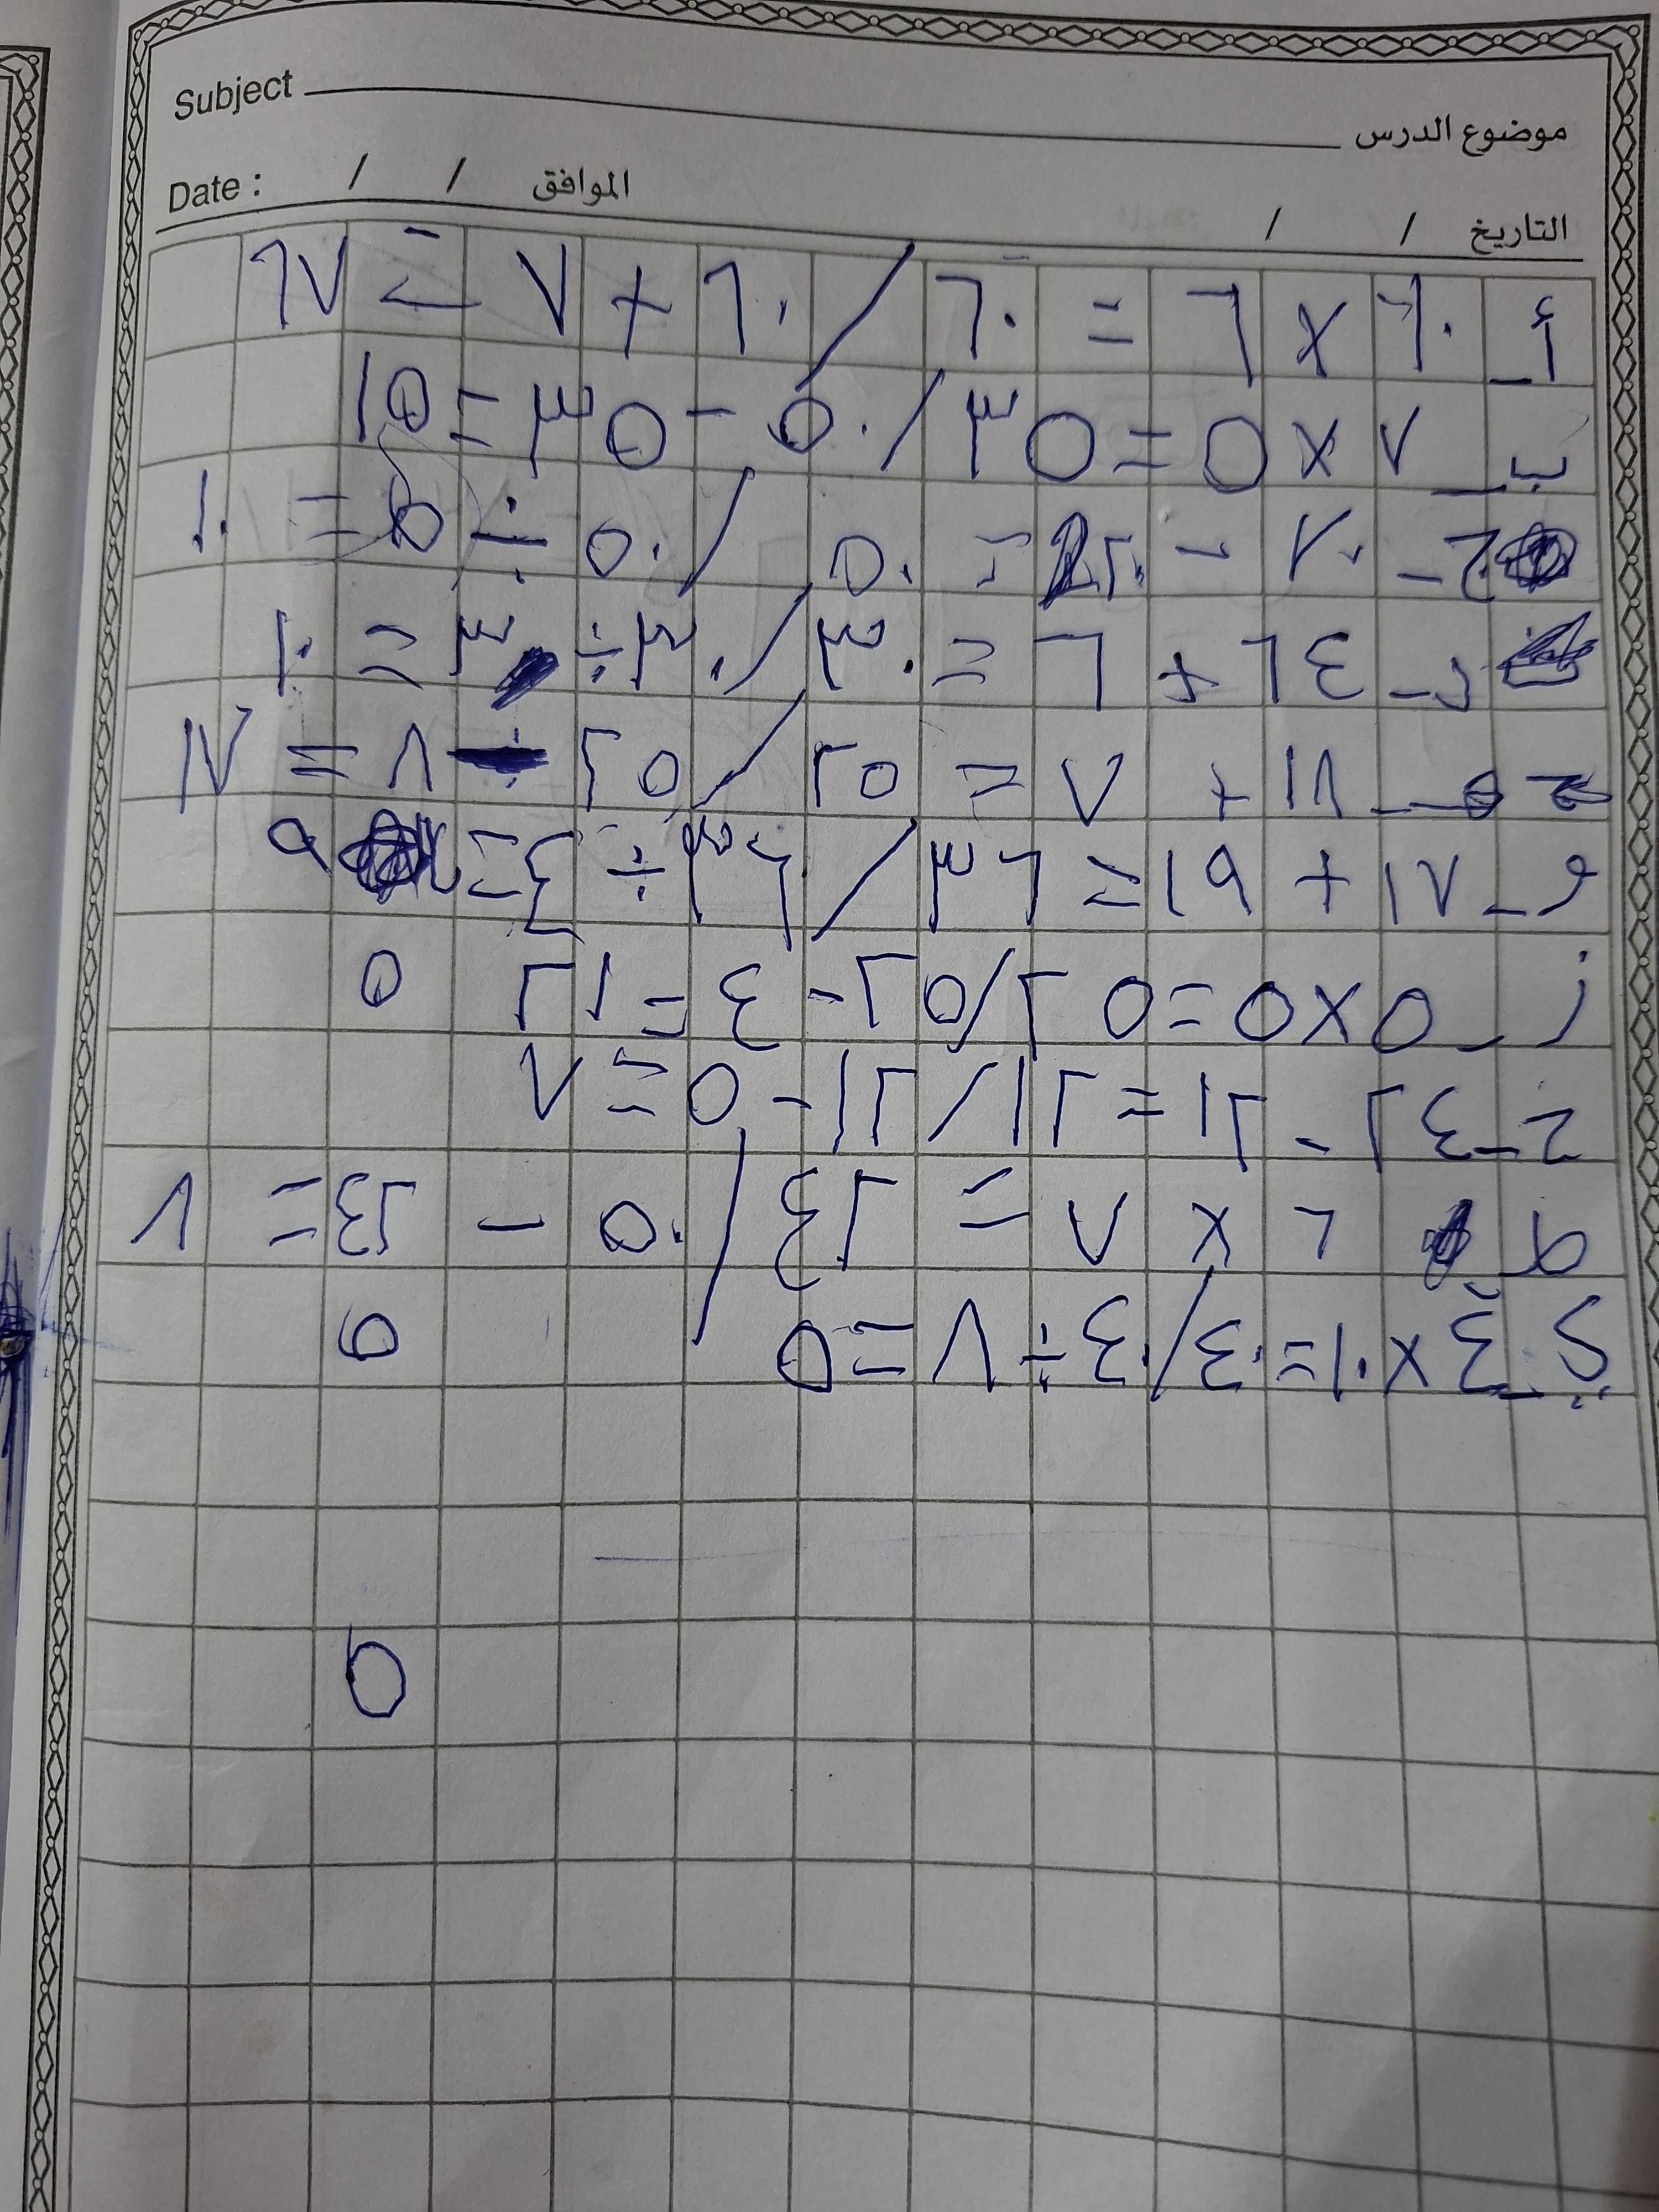 أ_ ١٠ × ٦ = ٦٠ / ٦٠ + ٧ = ٦٧
ب_ ٧ × ٥ = ٣٥ / ٥٠ - ٣٥ = ١٥
ج- ٧٠ - ٢٠ = ٥٠ / ٥٠ ÷ ٥ = ١٠
د- ٢٤ + ٦ = ٣٠ / ٣٠ ÷ ٣ = ١٠
هـ- ١٨ + ٧ = ٢٥ / ٢٥ - ٨ = ١٧
و- ١٧ + ١٩ = ٣٦ / ٣٦ ÷ ٤ = ٩
ز- ٥ × ٥ = ٢٥ / ٢٥ - ٤ = ٢١ ٥
ح- ٢٤ - ١٢ = ١٢ / ١٢ - ٥ = ٧
ط- ٦ × ٧ = ٤٢ / ٥٠ - ٤٢ = ٨
ي- ٤ × ١٠ = ٤٠ / ٤٠ ÷ ٨ = ٥ ٥
٥
Subject موضوع الدرس
Date : / / الموافق / / التاريخ